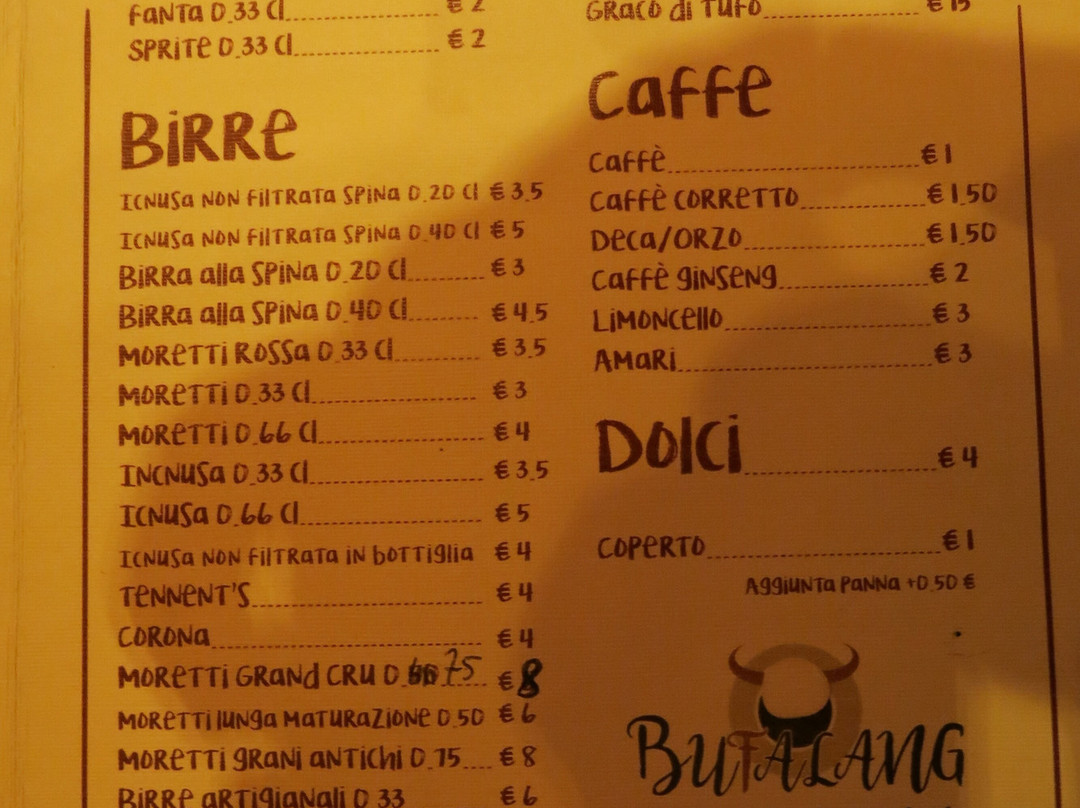 FANTA 0.33 Cl € 2
SPRITE 0.33 Cl € 2
BIRRE
ICNUSA NON FILTRATA SPINA 0.20 Cl € 3.5
ICNUSA NON FILTRATA SPINA 0.40 Cl € 5
BIRRA alla SPINA 0.20 Cl € 3
BIRRA alla SPINA 0.40 Cl € 4.5
MORETTI ROSSA 0.33 Cl € 3.5
MORETTI 0.33 Cl € 3
MORETTI 0.66 Cl € 4
INCNUSA 0.33 Cl € 3.5
ICNUSA 0.66 Cl € 5
ICNUSA NON FILTRATA IN BOTTIGLIA € 4
TENNENT'S € 4
CORONA € 4
MORETTI GRAND CRU 0. 75 € 8
MORETTI LUNGA MATURAZIONE 0.50 € 6
MORETTI GRANI ANTICHI 0.75 € 8
BIRRE ARTIGIANALI 0 33 € 6
GRACO di TUFO € 15
Caffe
Caffè € 1
Caffè CORRETTO € 1.50
DECA/ORZO € 1.50
Caffè GINSENG € 2
LIMONCELLO € 3
AMARI € 3
DOLCI € 4
COPERTO € 1
AGGIUNTA PANNA +0.50 €
BUFALANG